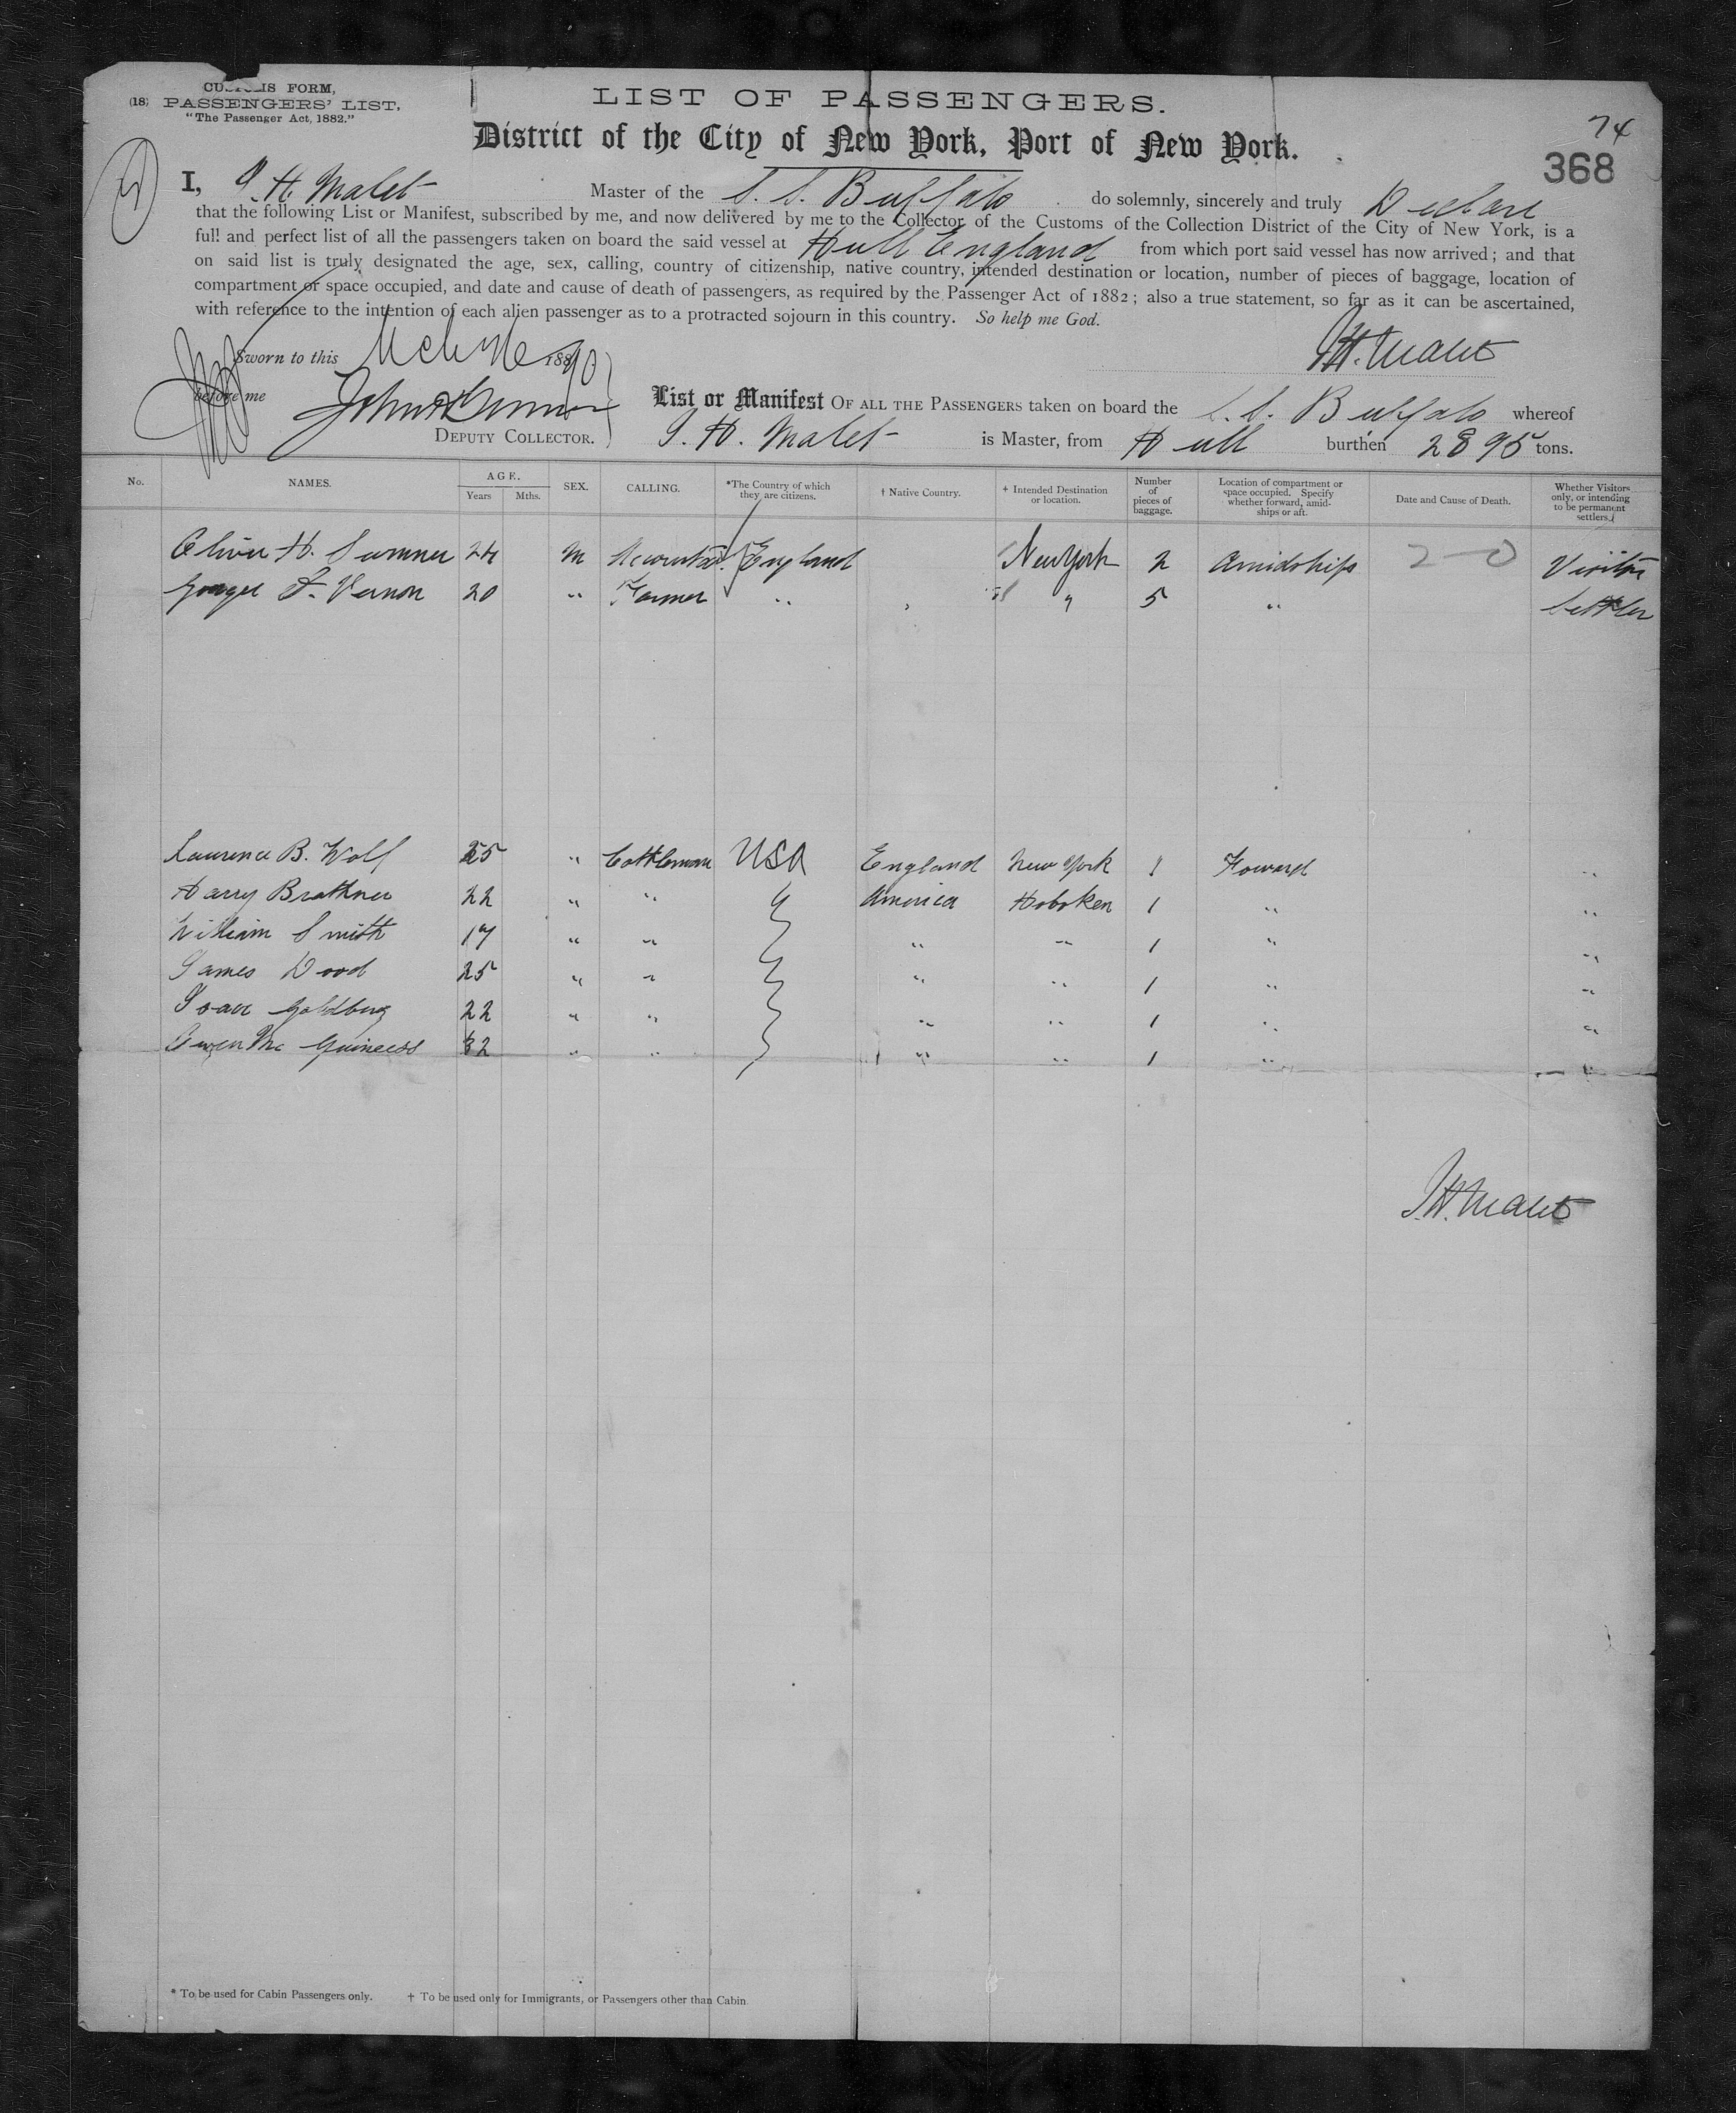 CUSTOMS FORM,
(18) PASSENGERS' LIST.
"The Passenger Act, 1882."
LIST OF PASSENGERS.
District of the City of New York, Port of New York.
74
368
I, J. H. Malet Master of the S. S. Buffalo do solemnly, sincerely and truly Declare
that the following List or Manifest, subscribed by me, and now delivered by me to the Collector of the Customs of the Collection District of the City of New York, is a
full and perfect list of all the passengers taken on board the said vessel at Hull England from which port said vessel has now arrived; and that
on said list is truly designated the age, sex, calling, country of citizenship, native country, intended destination or location, number of pieces of baggage, location of
compartment or space occupied, and date and cause of death of passengers, as required by the Passenger Act of 1882; also a true statement, so far as it can be ascertained,
with reference to the intention of each alien passenger as to a protracted sojourn in this country. So help me God.
Sworn to this 1890
J.H. Malet
before me
DEPUTY COLLECTOR.
List or Manifest OF ALL THE PASSENGERS taken on board the S. S. Buffalo whereof
J. H. Malet is Master, from Hull burthen 2895 tons.
No. NAMES. AGE. Years Mths. SEX. CALLING. *The Country of which they are citizens. † Native Country. † Intended Destination or location. Number of pieces of baggage. Location of compartment or space occupied. Specify whether forward, amidships or aft. Date and Cause of Death. Whether Visitors only, or intending to be permanent settlers.
Oliver H. Sumner 24 M Accountant England New York 2 Amidships 2-0 Visitor
George F. Vernon 20 " Farmer " " 5 " Settler
Laurence B. Wolf 25 " Cattleman USA England New York 1 Foward "
Harry Brathner 22 " " " America Hoboken 1 " "
William Smith 17 " " " " 1 " "
James Dood 25 " " " " 1 " "
Isaac Goldburg 22 " " " " 1 " "
Owen Mc Guiness 32 " " " " 1 " "
J.H. Malet
* To be used for Cabin Passengers only. † To be used only for Immigrants, or Passengers other than Cabin.